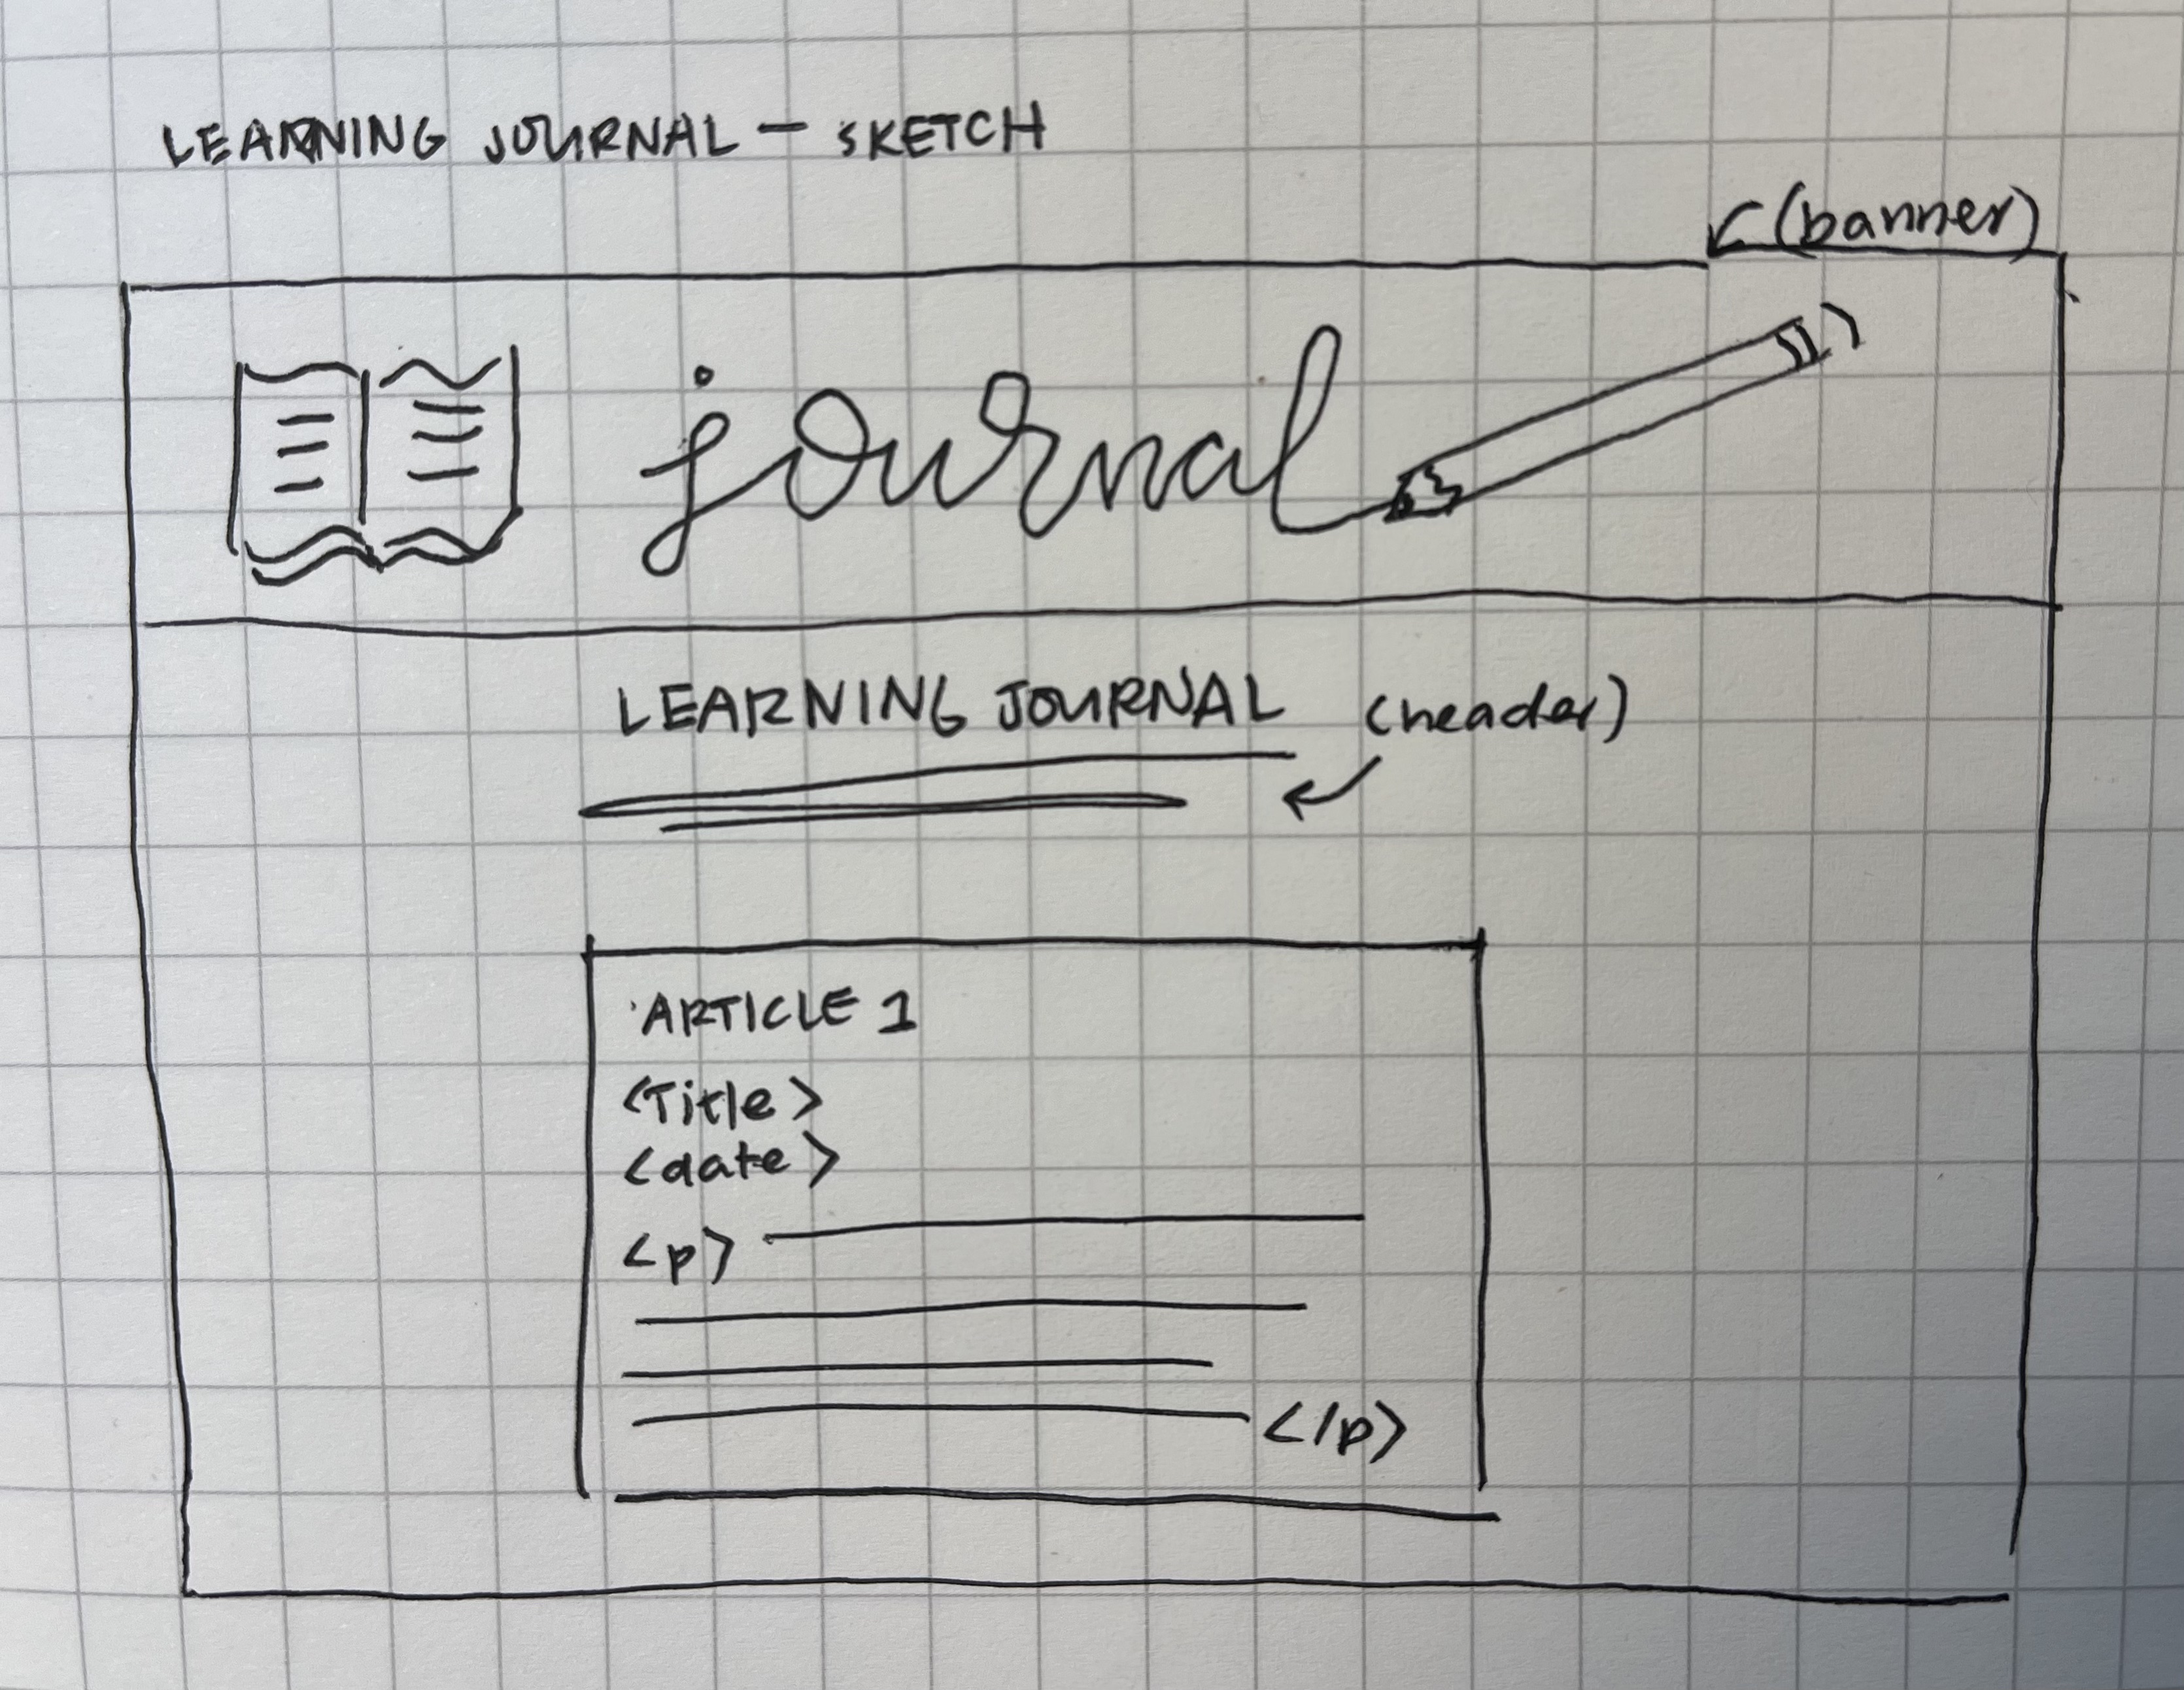 LEARNING JOURNAL - SKETCH
(banner)
journal
LEARNING JOURNAL (header)
ARTICLE 1
<Title>
<date>
<p>
</p>